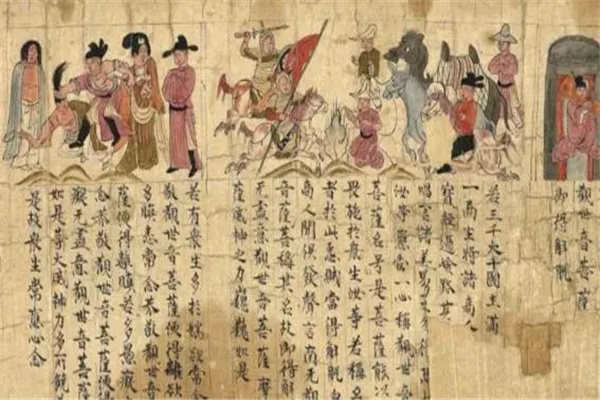 觀世音菩薩
即得解脫
若三千大千國土滿
一商主將諸商人
寶經過險路其
唱言諸善男子
汝等應當一心稱觀世音
菩薩名号是菩薩能以
畏施於衆生汝等若稱名
者於此怨賊當得解脫
商人聞俱發聲言南无觀
音菩薩稱其名故即得解
无盡意觀世音菩薩摩
薩威神之力巍巍如是
若有衆生多於婬欲常念
敬觀世音菩薩便得離欲
多瞋恚常念恭敬觀世音
薩便得離瞋若多愚癡
念恭敬觀世音菩薩便得
癡无盡意觀世音菩薩
如是等大威神力多所饒
是故衆生常應心念